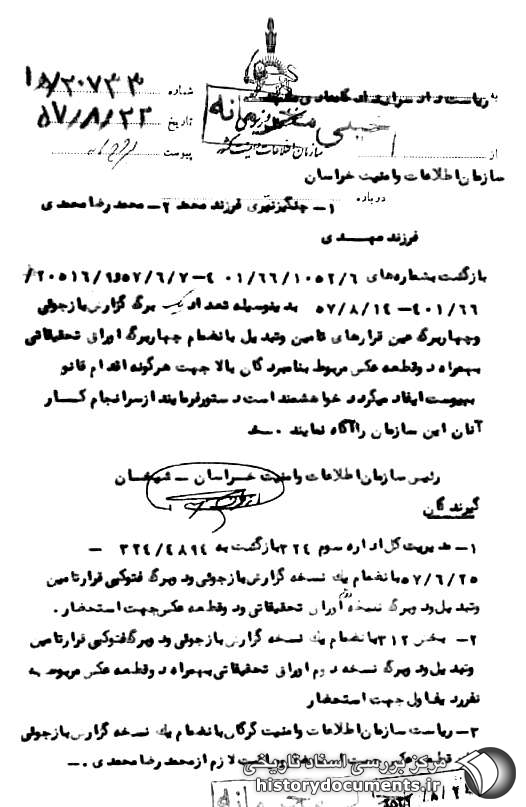 شماره ۱۵/۲۰۷۳۳
به ریاست دادسرای
تاریخ ۵۷/۸/۲۲
خیلی محرمانه
از
سازمان اطلاعات و امنیت کشور
پیوست
سازمان اطلاعات وامنیت خراسان
درباره
۱- چنگیز فرزند محمد ۲- محمد رضا محمدی
فرزند مهدی
بازگشت بشماره های ۴۰۱/۶۶/۱۰۵۲/۶-۵۷/۶/۷ و
۴۰۱/۶۶-۵۷/۸/۱۴ بدینوسیله تعداد یک برگ گزارش بازجوئی
وچهاربرگ عین قرارهای تامین وتبدیل بانضمام چهاربرگ اوراق تحقیقاتی
بهمراه دوقطعه عکس مربوط بنامبردگان بالا جهت هرگونه اقدام قانونی
بپیوست ایفاد میگردد خواهشمند است دستورفرمایند ازسرانجام کار
آنان این سازمان راآگاه نمایند
رئیس سازمان اطلاعات وامنیت خراسان - شیخان
گیرندگان
۱- مدیریت کل اداره سوم ۳۲۴ بازگشت به ۳۲۴/۴۸۹۴ -
۵۷/۶/۲۵ بانضمام یك نسخه گزارش بازجوئی ودوبرگ فتوکپی قرارتامین
وتبدیل ودوبرگ نسخه دوم اوراق تحقیقاتی ودوقطعه عکس جهت استحضار .
۲- بخش ۳۱۲ بانضمام یك نسخه گزارش بازجوئی ودوبرگ فتوکپی قرارتامین
وتبدیل ودوبرگ نسخه دوم اوراق تحقیقاتی بهمراه دوقطعه عکس مربوط به
نفر ردیف اول جهت استحضار
۳- ریاست سازمان اطلاعات وامنیت گرگان بانضمام یك نسخه گزارش بازجوئی
قطعه عکس لازم ازمحمد رضا محمدی . -
مرکز بررسی اسناد تاریخی
historydocuments.ir